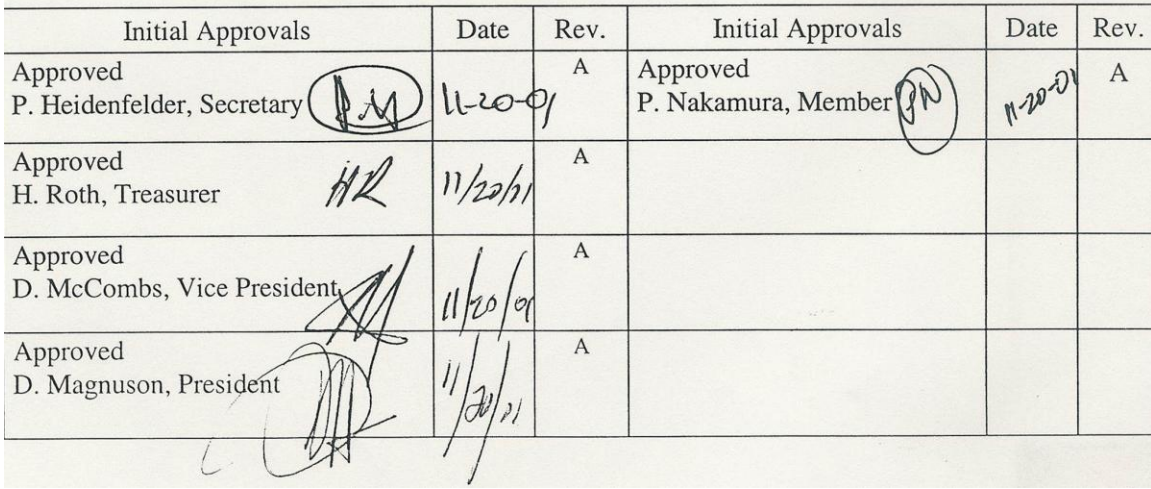 Initial Approvals Date Rev. Initial Approvals Date Rev.
Approved
P. Heidenfelder, Secretary 11-20-01 A
Approved
P. Nakamura, Member PN 11-20-01 A
Approved
H. Roth, Treasurer HR 11/20/01 A
Approved
D. McCombs, Vice President 11/20/01 A
Approved
D. Magnuson, President 11/20/01 A